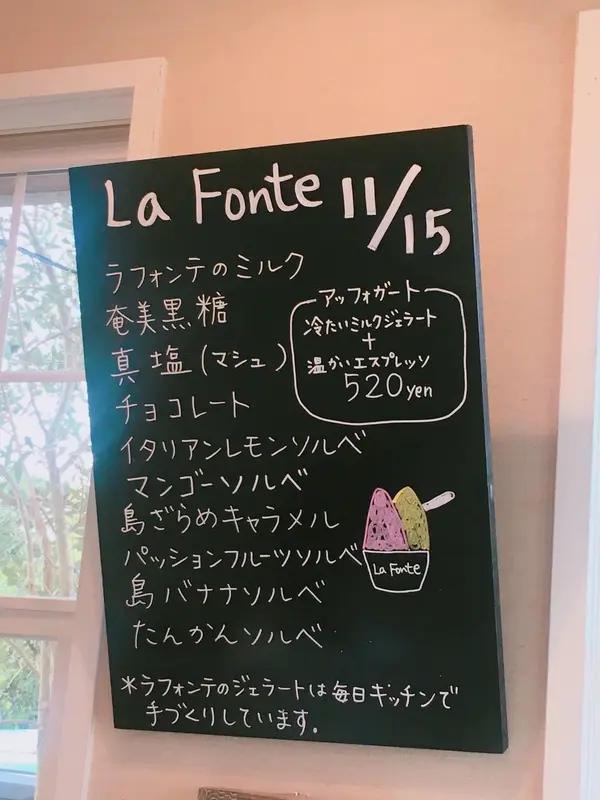 La Fonte 11/15
ラフォンテのミルク
奄美黒糖
真塩(マシュ)
チョコレート
イタリアンレモンソルベ
マンゴーソルベ
島ざらめキャラメル
パッションフルーツソルベ
島バナナソルベ
たんかんソルベ
アッフォガート
冷たいミルクジェラート
+
温かいエスプレッソ
520yen
La Fonte
*ラフォンテのジェラートは毎日キッチンで
手づくりしています.